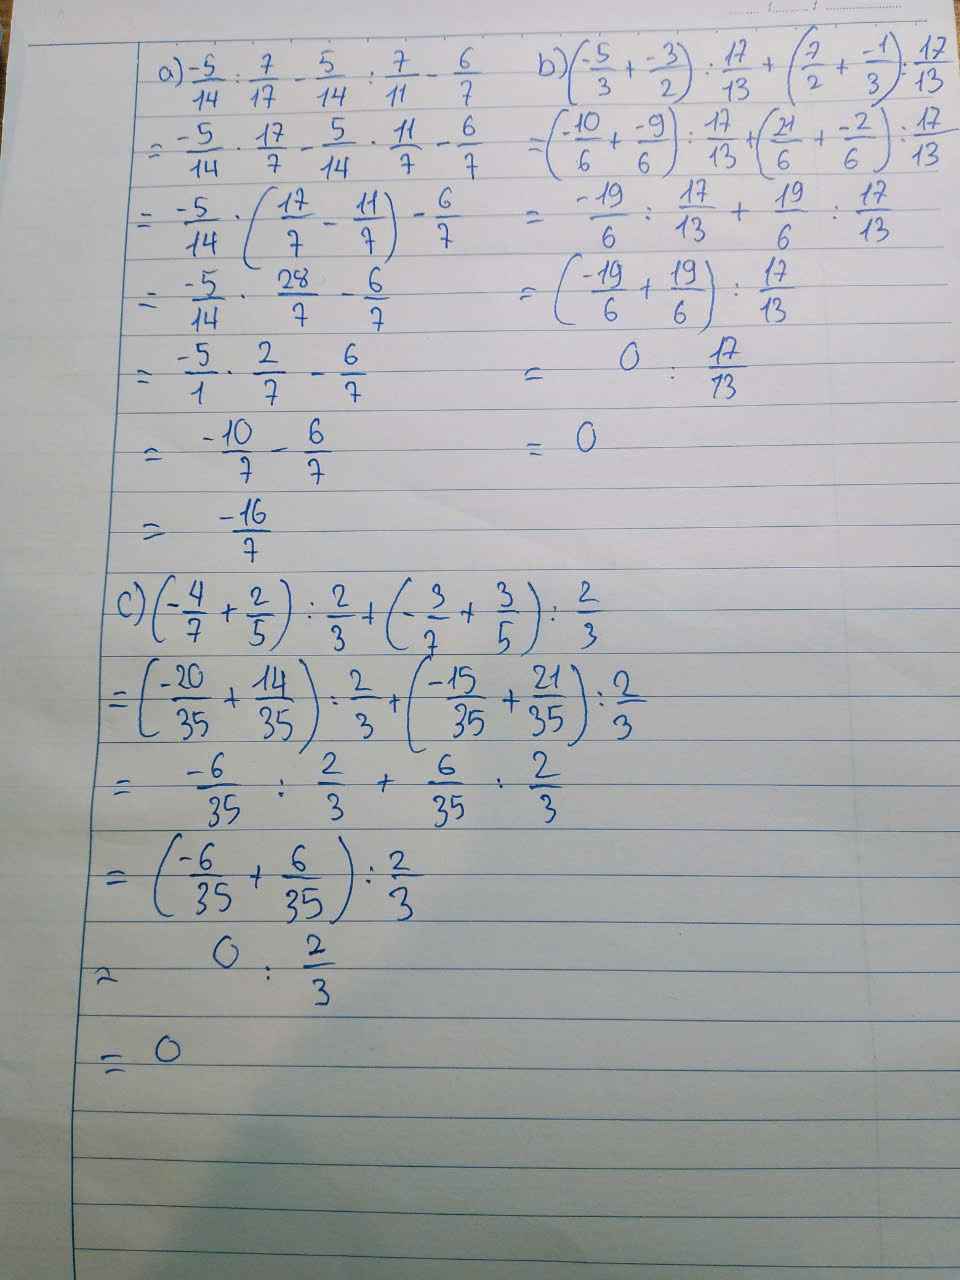 a) -5/14 : 7/17 - 5/14 : 7/11 - 6/7
= -5/14 · 17/7 - 5/14 · 11/7 - 6/7
= -5/14 · (17/7 - 11/7) - 6/7
= -5/14 · 28/7 - 6/7
= -5/1 · 2/7 - 6/7
= -10/7 - 6/7
= -16/7
b) (-5/3 + -3/2) : 17/13 + (7/2 + -1/3) : 17/13
= (-10/6 + -9/6) : 17/13 + (21/6 + -2/6) : 17/13
= -19/6 : 17/13 + 19/6 : 17/13
= (-19/6 + 19/6) : 17/13
= 0 : 17/13
= 0
c) (-4/7 + 2/5) : 2/3 + (-3/7 + 3/5) : 2/3
= (-20/35 + 14/35) : 2/3 + (-15/35 + 21/35) : 2/3
= -6/35 : 2/3 + 6/35 : 2/3
= (-6/35 + 6/35) : 2/3
= 0 : 2/3
= 0